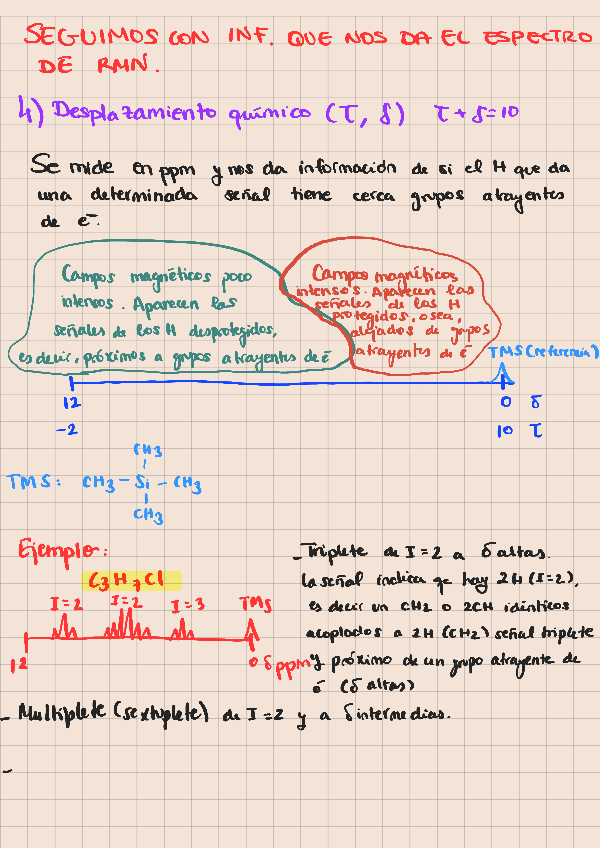 SEGUIMOS CON INF. QUE NOS DA EL ESPECTRO
DE RMN.
4) Desplazamiento químico (τ, δ) τ + δ = 10
Se mide en ppm y nos da información de si el H que da
una determinada señal tiene cerca grupos atrayentes
de e⁻.
Campos magnéticos poco
intensos. Aparecen las
señales de los H desprotegidos,
es decir, próximos a grupos atrayentes de ē
Campos magnéticos
intensos. Aparecen las
señales de los H
protegidos, osea,
alejados de grupos
atrayentes de ē
TMS (referencia)
12 0 δ
-2 10 τ
CH3
TMS: CH3 - Si - CH3
CH3
Ejemplo:
C3H7Cl
I=2 I=2 I=3 TMS
12 0 δ ppm
- Triplete de I=2 a δ altas.
La señal indica qe hay 2H (I=2),
es decir un CH2 o 2CH idénticos
acoplados a 2H (CH2) señal triplete
y próximo de un grupo atrayente de
ē (δ altas)
- Multiplete (sextuplete) de I=2 y a δ intermedias.
-